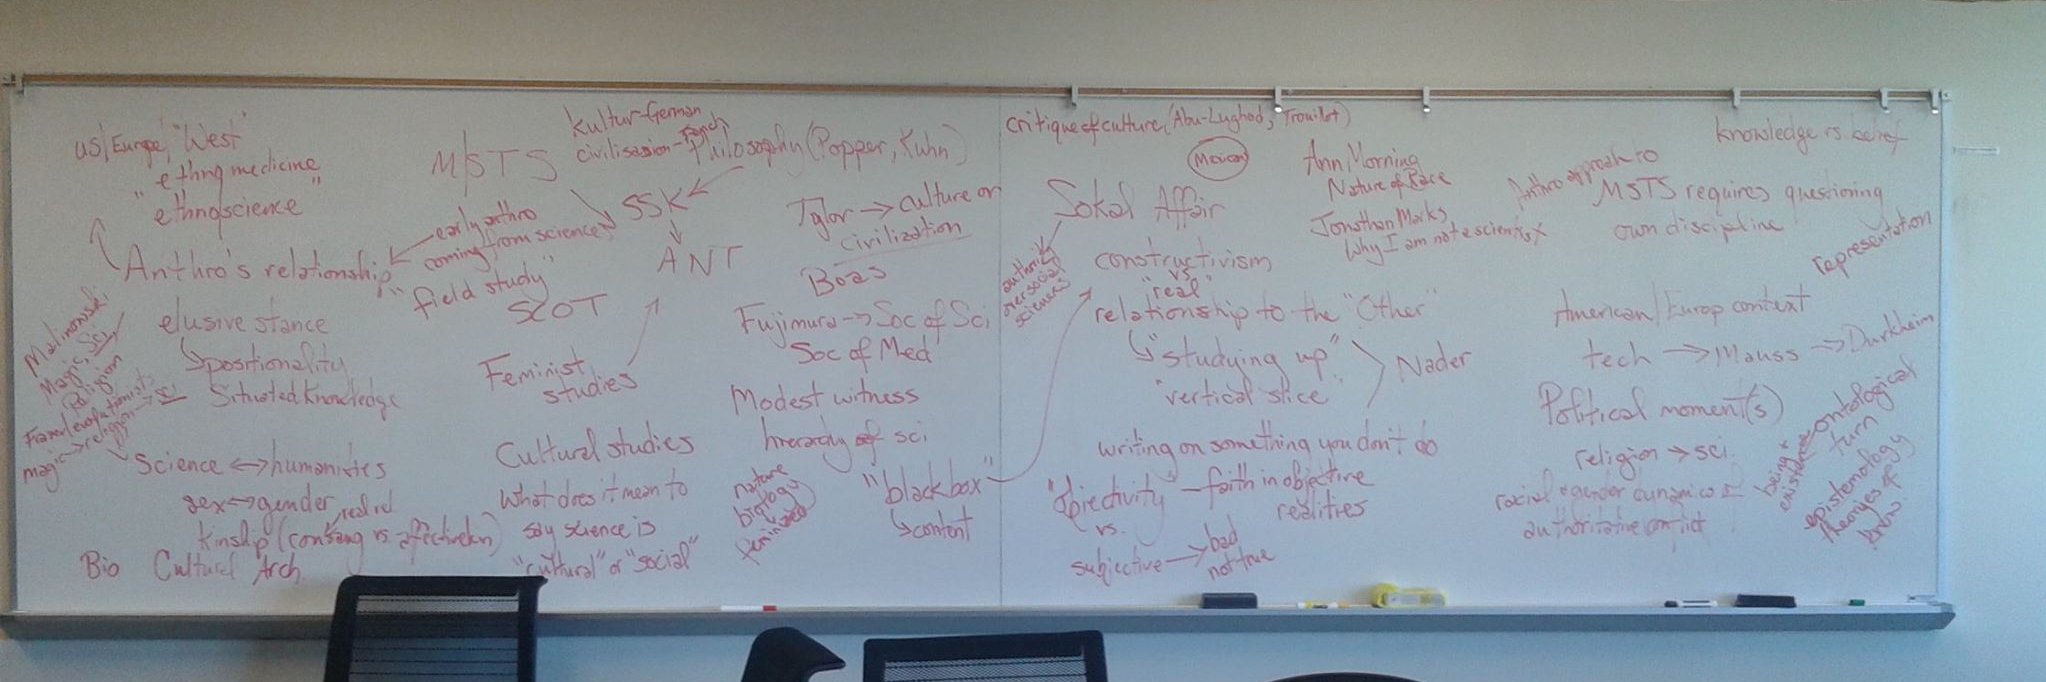 US/Europe, "West"
"ethnomedicine
"ethnoscience"
Anthro's relationship
early anthro
coming from science
"field study"
elusive stance
positionality
Situated knowledge
Malinowski
Magic, Sci,
Religion
Frazer/evolutionist
magic → religion → sci
Science ↔ humanities
sex ↔ gender
kinship (consang vs
Bio Cultural Arch
M/STS
Kultur-German
civilisation-French
Philosophy (Popper, Kuhn)
SSK
ANT
SCOT
Feminist
studies
Cultural studies
what does it mean to
say science is
"cultural" or "social"
Tylor → culture or
civilization
Boas
Fujimura → Soc of Sci
Soc of Med
Modest witness
hierarchy of sci
nature
biology
feminized
"black box"
content
critique of culture (Abu-Lughod, Trouillot)
Sokal Affair
authority
over social
sciences
constructivism
vs
"real"
relationship to the "Other"
"studying up"
"vertical slice"
Nader
writing on something you don't do
"Objectivity — faith in objective
realities
vs.
subjective → bad
not true
Ann Morning
Nature of Race
Jonathan Marks
Why I am not a scientist
knowledge vs belief
Anthro approach to
MSTS requires questioning
own discipline
representation
American/Europ context
tech → Mauss → Durkheim
Political moment(s)
religion → sci.
racial & gender dynamics
authoritative conflict
ontological
turn
being &
existence
epistemology
theories of